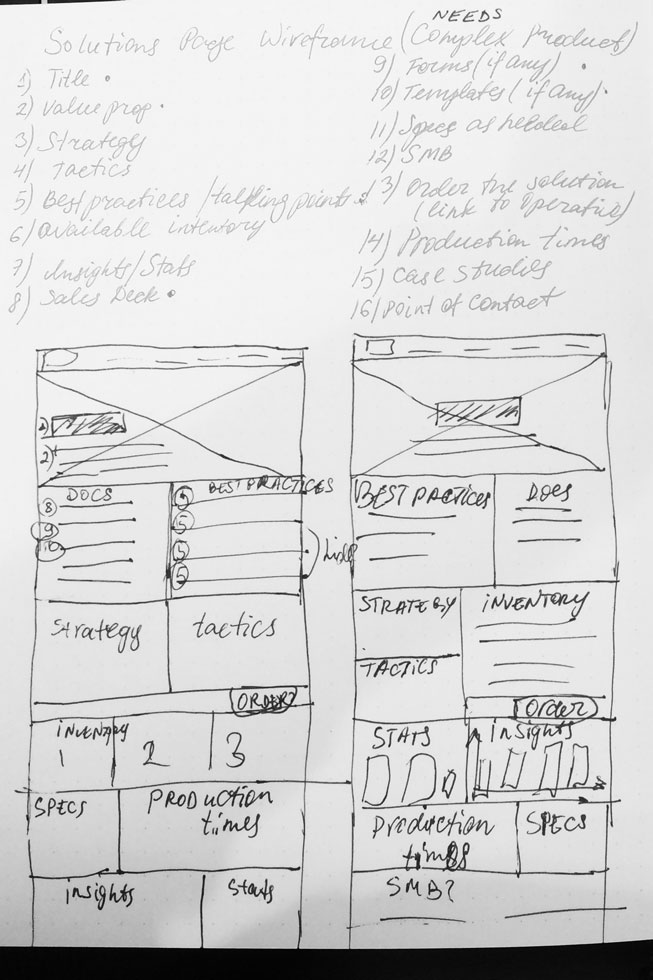 NEEDS
Solutions Page Wireframe (Complex Product)
1) Title •
2) Value prop •
3) Strategy
4) Tactics
5) Best practices / talking points •
6) available inventory
7) Insights/Stats
8) Sales Deck •
9) Forms (if any) •
10) Templates (if any) •
11) Specs as needed
12) SMB
13) Order the solution
(link to operative)
14) Production times
15) Case Studies
16) Point of Contact
1)
2)
DOCS
8
9
10
BEST PRACTICES
5
5
5
5
Links
Strategy
tactics
ORDER?
INVENTORY
1 2 3
SPECS
PRODUCTION
times
insights
Stats
BEST PACTICES
DOCS
STRATEGY
TACTICS
INVENTORY
Order
STATS
insights
Production
times
SPECS
SMB?